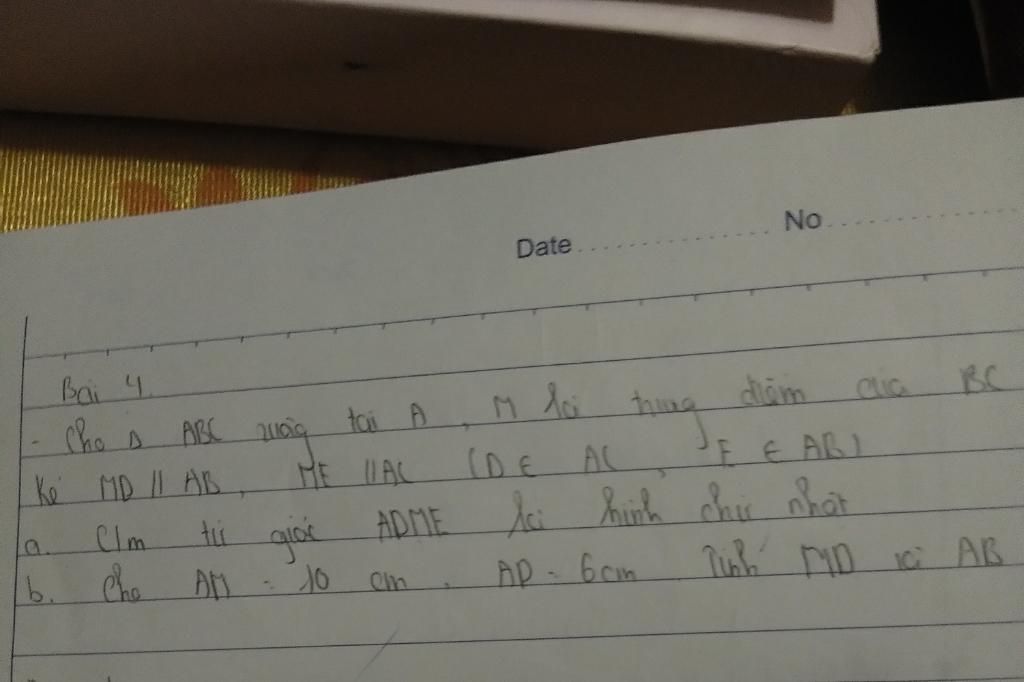 Date No
Bài 4.
- Cho Δ ABC vuông tại A, M là trung điểm của BC
Kẻ MD // AB, ME // AC (D ∈ AC, E ∈ AB)
a. C/m tứ giác ADME là hình chữ nhật
b. Cho AM = 10 cm, AD = 6cm Tính MD và AB